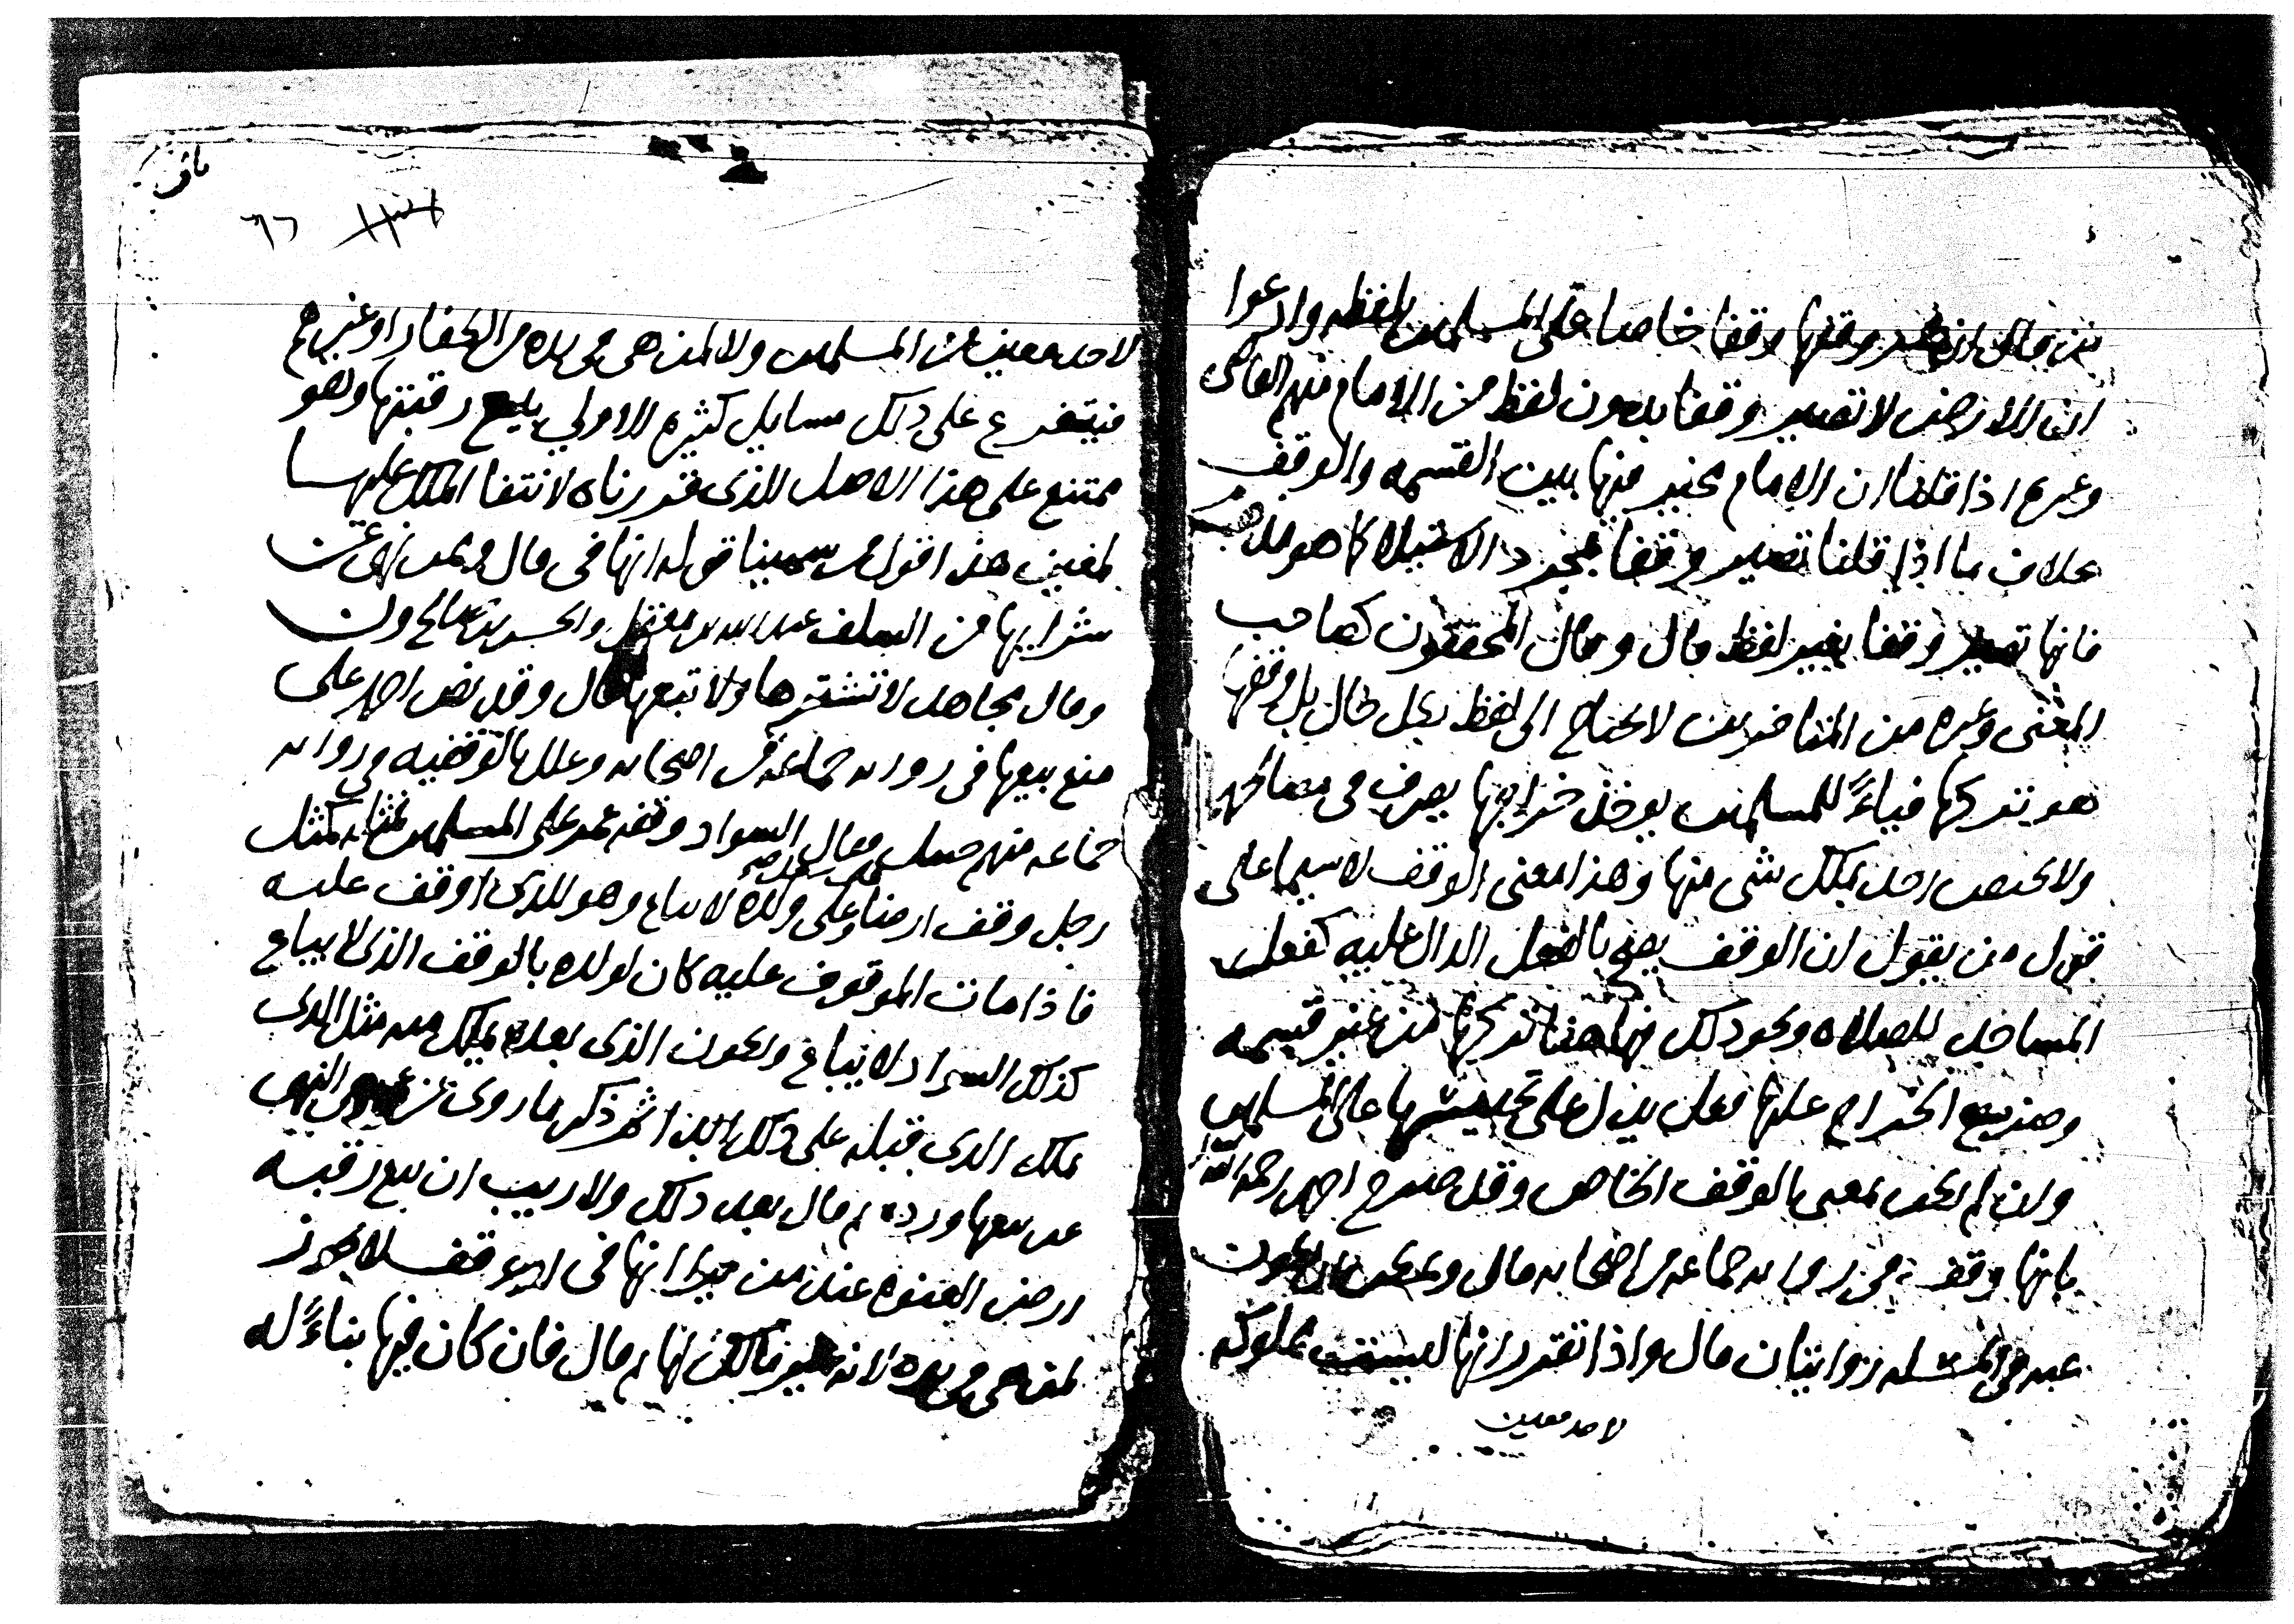 من قال ان عمر وقفها وقفا خاصا على المسلمين بلفظه وادعوا
ان الارض لا تصير وقفا بدون لفظ من الامام منهم القاضي
وغيره اذا قلنا ان الامام مخير فيها بين القسمه والوقف
بخلاف ما اذا قلنا تصير وقفا بمجرد الاستيلاء كما هو مذهب
فانها تصير وقفا بغير لفظ قال وقال المحققون كصاحب
المغنى وغيره من المتاخرين لا يحتاج الى لفظ بكل حال بل وقفها
هو تركها فياءً للمسلمين يوخذ خراجها يصرف في مصالحهم
ولا يختص احد بملك شى منها وهذا معنى الوقف لا سيما على
قول من يقول ان الوقف يصح بالفعل الدال عليه كفعل
المساجد للصلاه ونحو ذلك فهاهنا تركها من غير قسمه
وضرب الخراج عليها فعل يدل على تحبيسها على المسلمين
وان لم يكن بمعنى الوقف الخاص وقد صرح احمد رحمه الله
بانها وقف في روايه جماعه من اصحابه قال ويمكن ان يكون
عنه في المسله روايتان قال واذا تقرر انها ليست مملوكه
لاحد معين
٦٦
لاحد معين من المسلمين ولا لمن هي في يده من الكفار او غيرهم
فيتفرع على ذلك مسايل كثيره الاولى بيع رقبتها وهو
ممتنع على هذا الاصل الذى قررناه لانتفا الملك عليها
لمعين هذا اقول م سمينا قوله انها في قال وممن نهى عن
شرايها من السلف عبد الله بن مغفل والحسن بن صالح ون
وقال مجاهد لا تشترها ولا تبعها قال وقد نص احمد على
منع بيعها في روايه جماعه من اصحابه وعلل بالوقفيه في روايه
جماعه منهم حنبل وقال السواد وقفه عمر على المسلمين فمثله كمثل
رجل وقف ارضا وعلى ولده لا تباع وهو للذى اوقف عليه
فاذا مات الموقوف عليه كان لولده بالوقف الذى لا يباع
كذلك السواد لا يباع ويكون الذى بعده يملك منه مثل الذى
يملك الذى قبله على ذلك ابدا ثم ذكر ما روى عن النهى
عن بيعها ورده ثم قال بعد ذلك ولا ريب ان بيع رقبة
ارض العنوه عند من يرا انها في او وقف لا يجوز
لمن هي في يده لانه غير مالك لها ثم قال فان كان فيها بناءً له